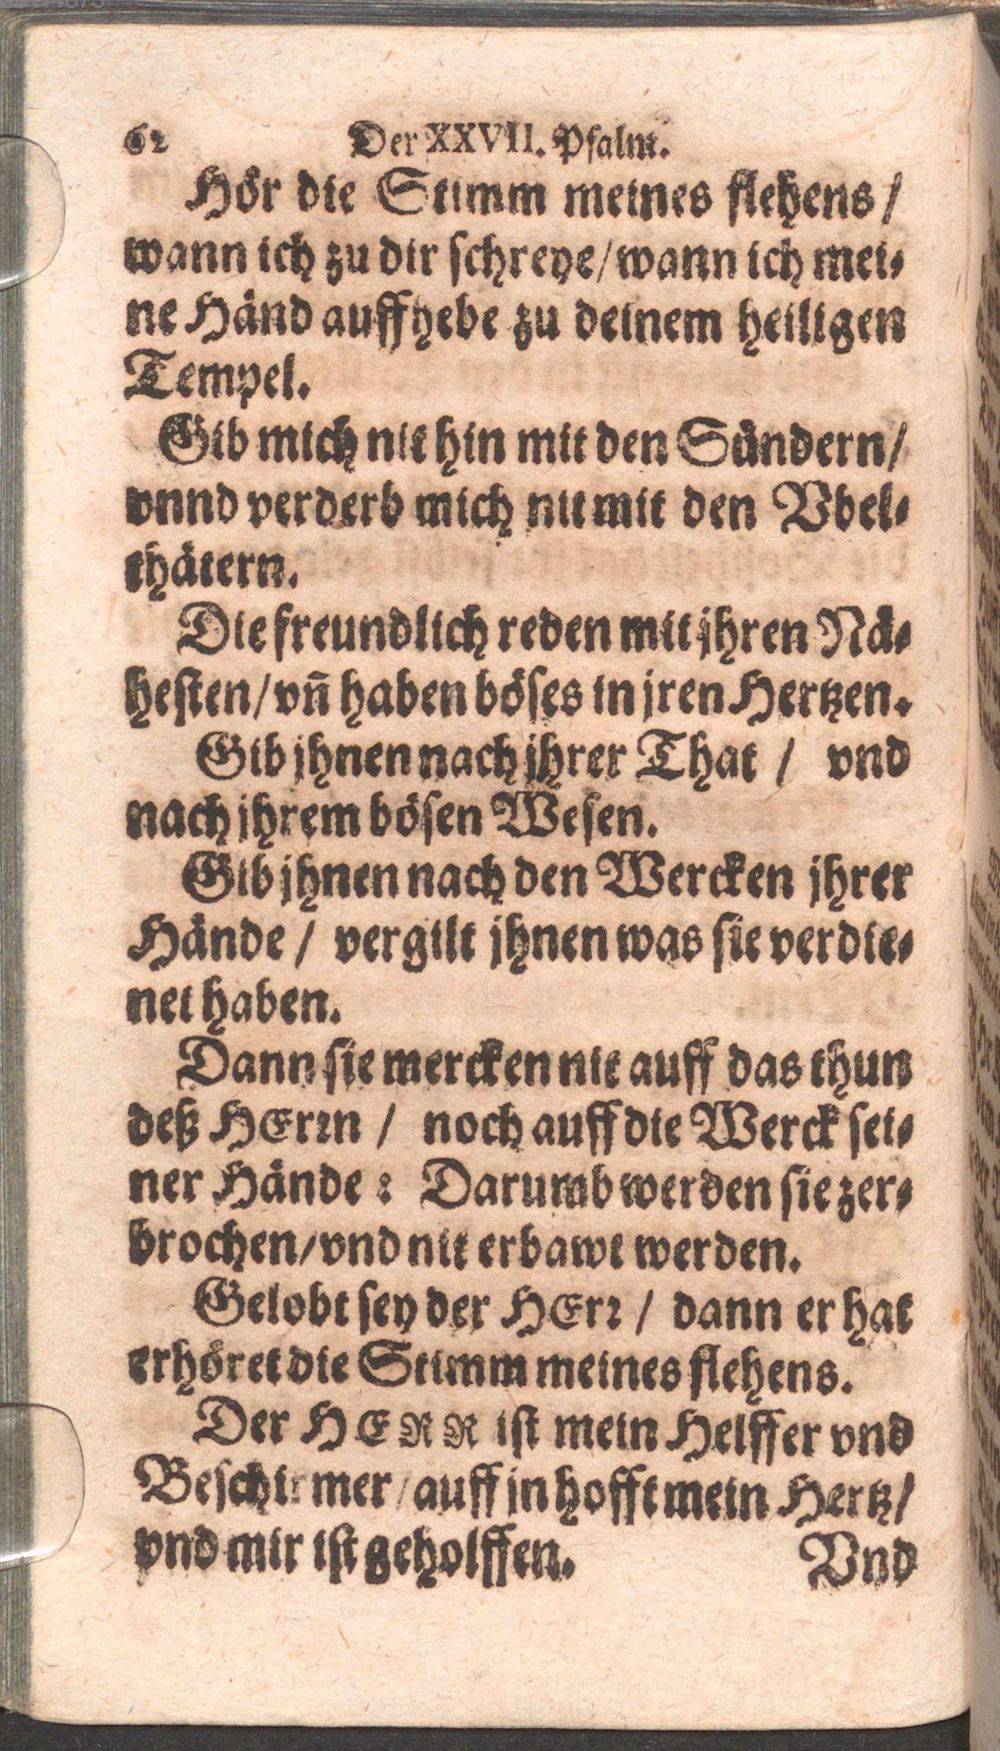 62 Der XXVII. Psalm.
Hör die Stimm meines flehens /
wann ich zu dir schreye / wann ich mei-
ne Händ auffhebe zu deinem heiligen
Tempel.
Gib mich nit hin mit den Sündern /
vnnd verderb mich nit mit den Vbel-
thätern.
Die freundlich reden mit jhren Nä-
hesten / vñ haben böses in jren Hertzen.
Gib jhnen nach jhrer That / vnd
nach jhrem bösen Wesen.
Gib jhnen nach den Wercken jhrer
Hände / vergilt jhnen was sie verdie-
net haben.
Dann sie mercken nit auff das thun
deß HErꝛn / noch auff die Werck sei-
ner Hände : Darumb werden sie zer-
brochen / vnd nit erbawt werden.
Gelobt sey der HErꝛ / dann er hat
erhöret die Stimm meines flehens.
Der HERR ist mein Helffer vnd
Beschirmer / auff jn hofft mein Hertz /
vnd mir ist geholffen. Vnd